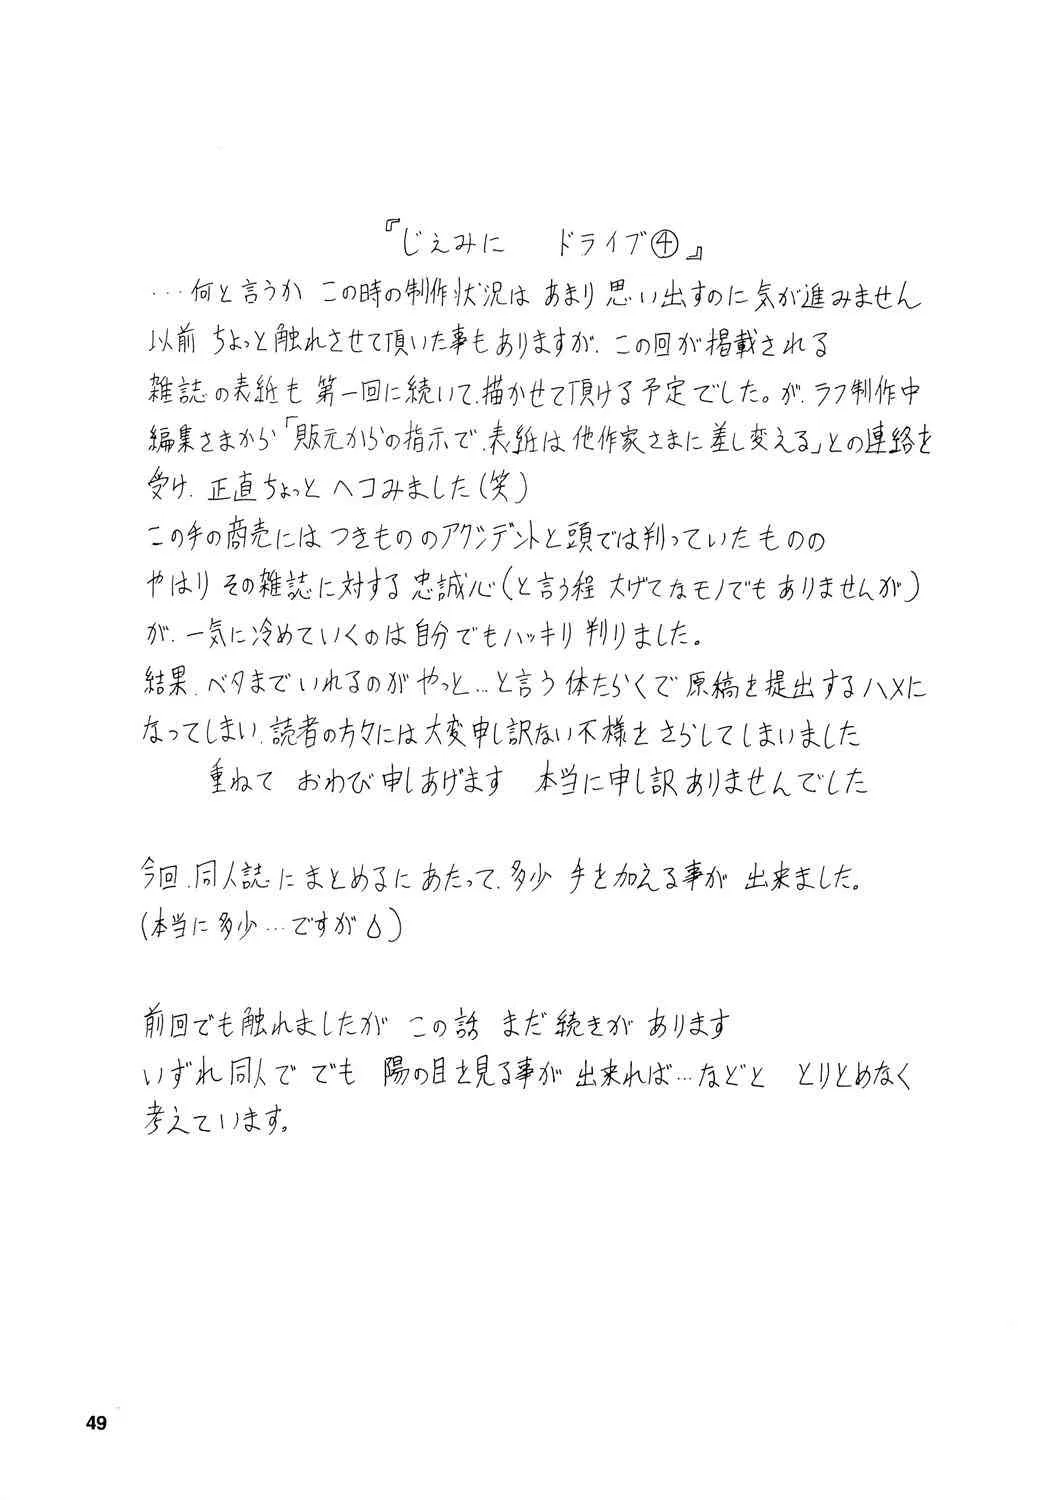 『じぇみに　ドライブ④』
…何と言うか この時の制作状況は あまり 思い出すのに気が進みません
以前 ちょっと触れさせて頂いた事もありますが、この回が掲載される
雑誌の表紙も 第一回に続いて、描かせて頂ける予定でした。が、ラフ制作中
編集さまから「販元からの指示で、表紙は他作家さまに差し変える」との連絡を
受け、正直ちょっと ヘコみました(笑)
この手の商売には つきもののアクシデントと頭では判っていたものの
やはり その雑誌に対する 忠誠心(と言う程 大げてなモノでも ありませんが)
が、一気に冷めていくのは自分でもハッキリ判りました。
結果、ベタまでいれるのが やっと…と言う 体たらくで 原稿を提出するハメに
なってしまい、読者の方々には大変申し訳ない不様を さらしてしまいました
重ねて おわび申しあげます 本当に申し訳ありませんでした
今回、同人誌にまとめるにあたって、多少 手を加える事が 出来ました。
(本当に多少…ですが)
前回でも触れましたが この話 まだ続きが あります
いずれ同人で でも 陽の目を見る事が 出来れば…などと とりとめなく
考えています。
49